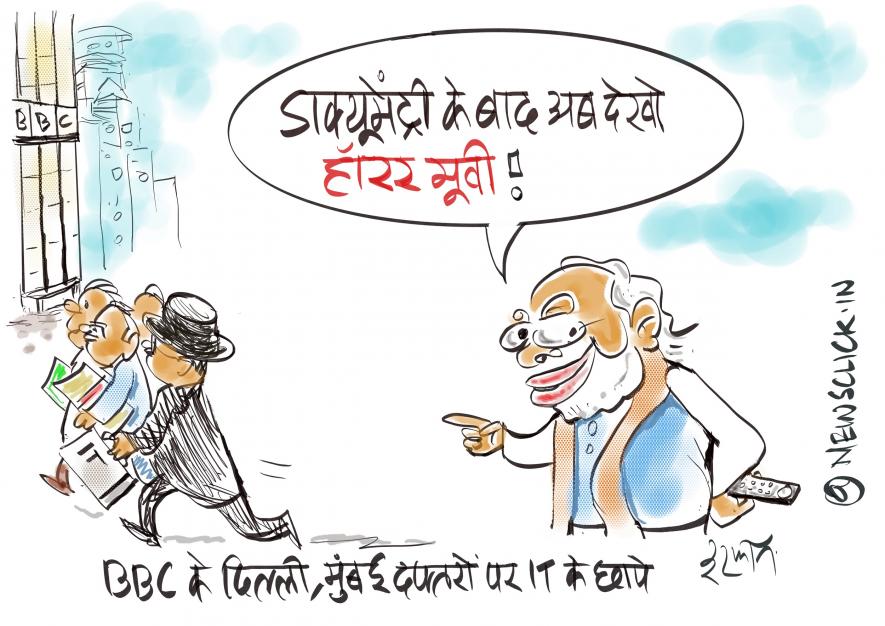 डाक्यूमेंट्री के बाद अब देखो
हॉरर मूवी !
BBC
IT
BBC के दिल्ली, मुंबई दफ्तरों पर IT के छापे
इरफान
@ NEWSCLICK.IN